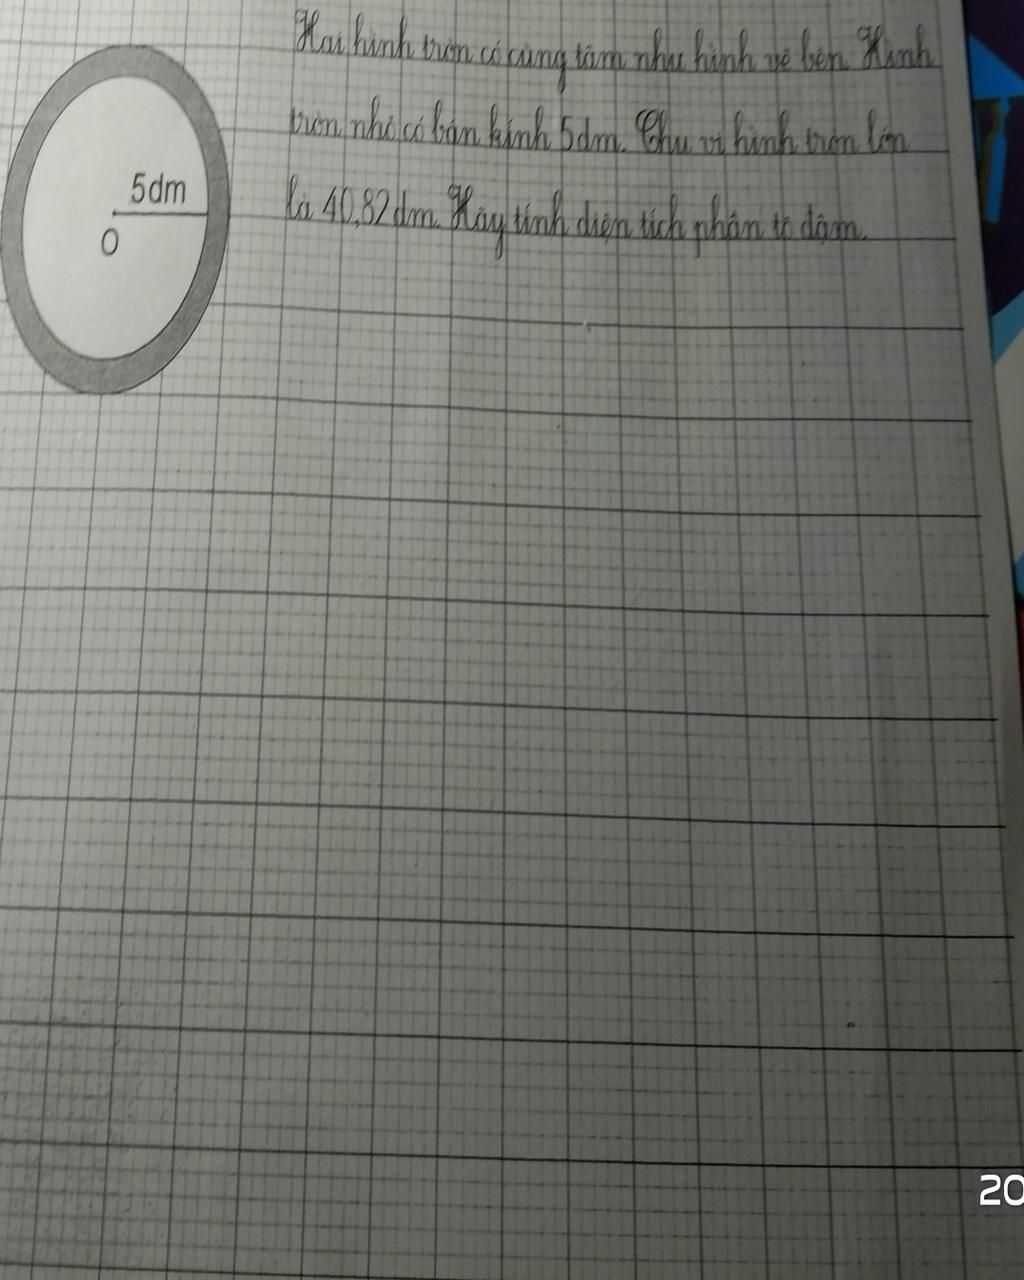 Hai hình tròn có cùng tâm như hình vẽ bên. Hình
tròn nhỏ có bán kính 5dm. Chu vi hình tròn lớn
là 40,82 dm. Hãy tính diện tích phần tô đậm.
5dm
O
20